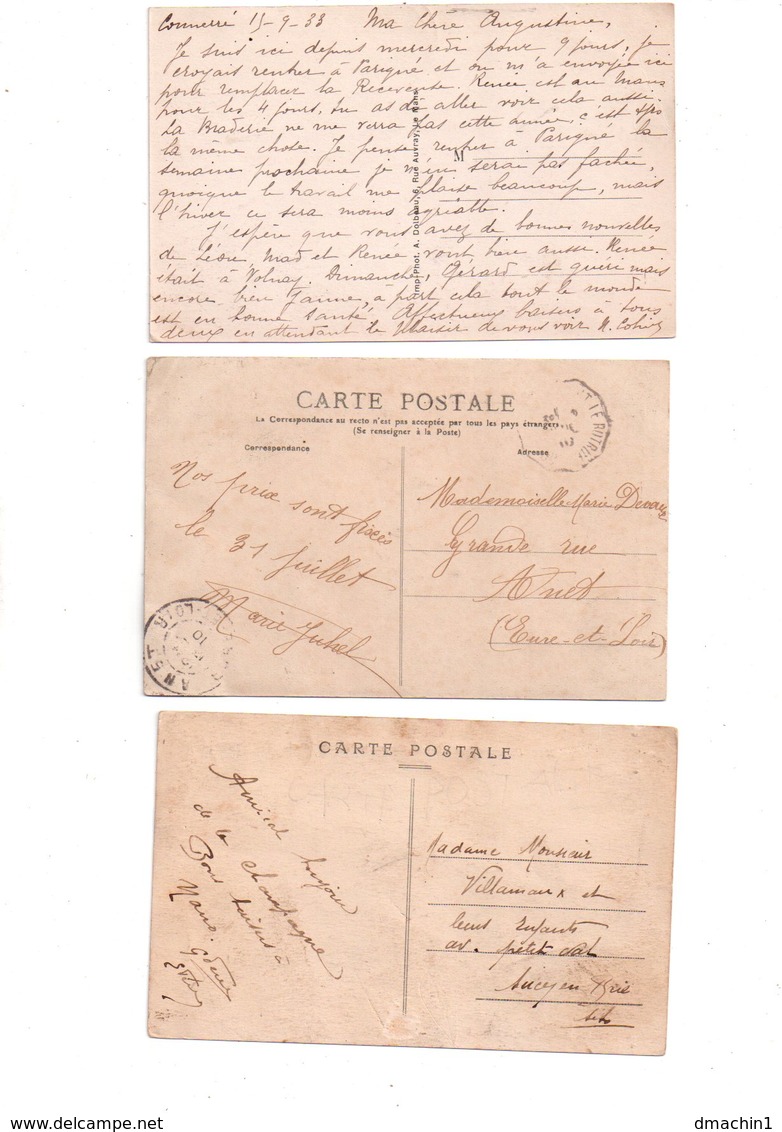 Connerré 15-9-33 Ma Chere Augustine,
Je suis ici depuis mercredi pour 9 jours, je
croyais rentrer à Parigné et on m'a envoyée ici
pour remplacer la Receveuse. Renée est au Mans
pour les 4 jours, tu as dû aller voir cela aussi.
La Braderie ne me verra pas cette année, c'est
la même chose. Je pense rentrer à Parigné la
semaine prochaine je n'en serai pas fachée,
quoique le travail me plaise beaucoup, mais
l'hiver ce sera moins agréable.
J'espère que vous avez de bonnes nouvelles
de Léon, Mad et Renée vont bien aussi. Renée
était à Volnay Dimanche, Gérard est guéri mais
encore bien jaune, à part cela tout le monde
est en bonne santé. Affectueux baisers à tous
deux en attendant le plaisir de vous voir
M
Imp. Phot. A. Dolbeau, 6, Rue Auvray, Le Mans
CARTE POSTALE
La Correspondance au recto n'est pas acceptée par tous les pays étrangers
(Se renseigner à la Poste)
Correspondance
Adresse
Nos prix sont fixés
le 31 juillet
Marie Juhel
Mademoiselle Marie
Grande rue
Anet
(Eure-et-Loir)
ANET
CARTE POSTALE
Amical
de la champagne
Bons baisers à
Madame Monsieur
Villamaux et
leurs Enfants
av. petit
Sucy en Brie
delcampe.net
dmachin1